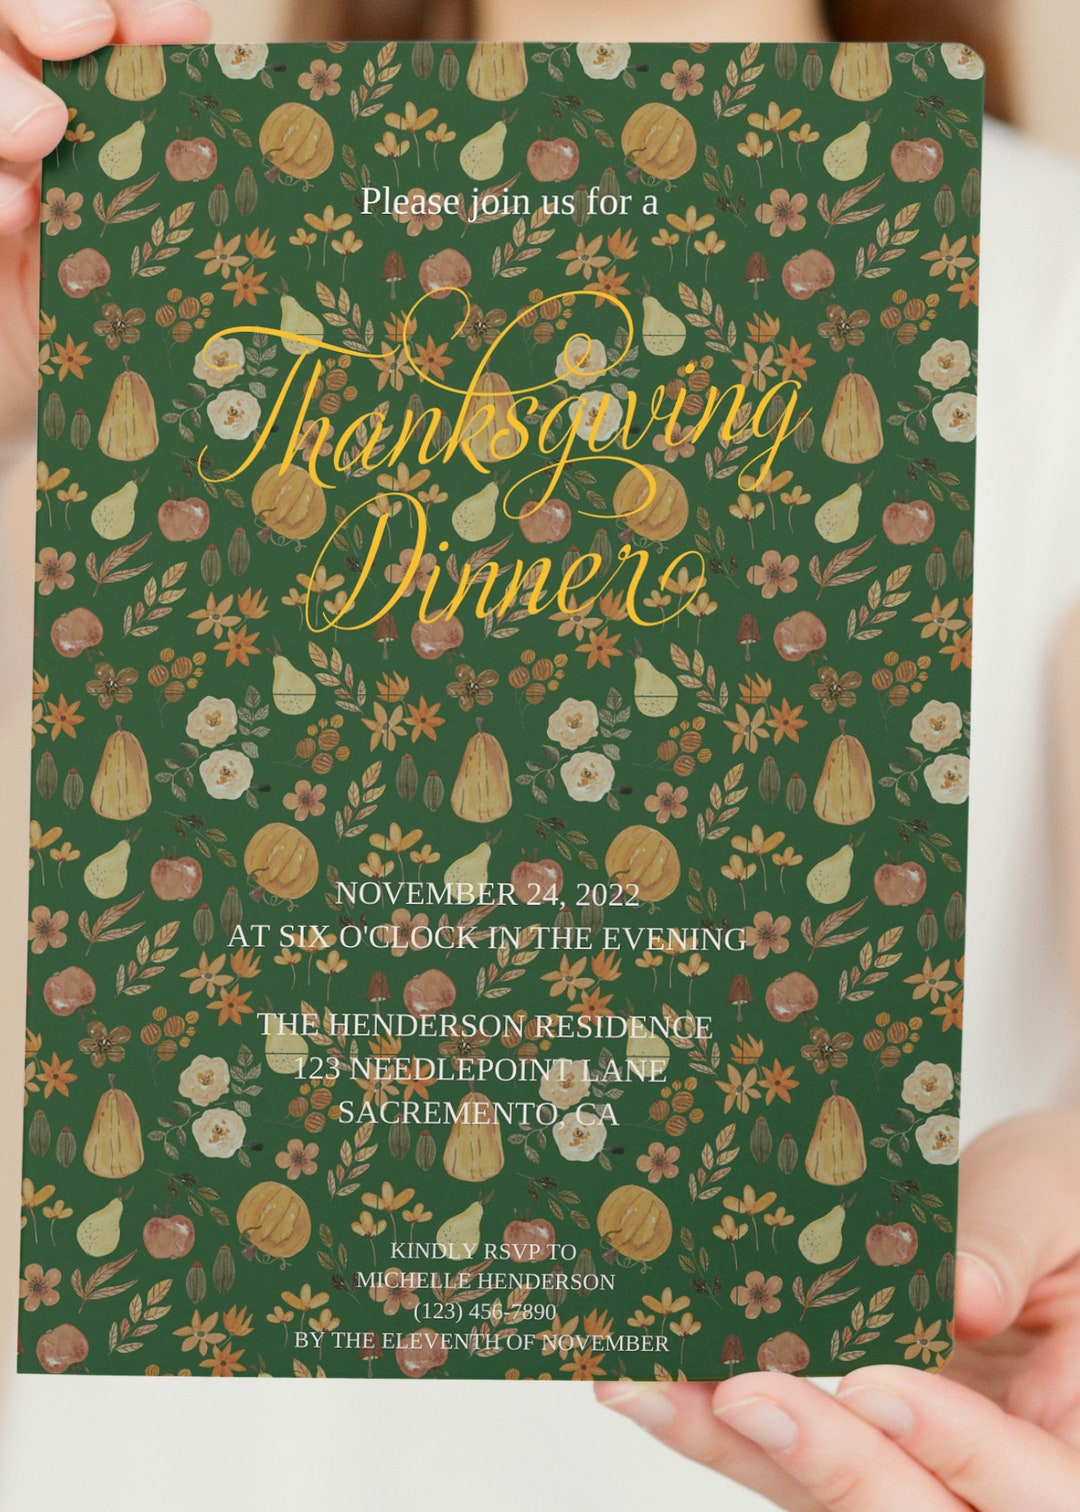 Please join us for a
Thanksgiving
Dinner
NOVEMBER 24, 2022
AT SIX O'CLOCK IN THE EVENING
THE HENDERSON RESIDENCE
123 NEEDLEPOINT LANE
SACREMENTO, CA
KINDLY RSVP TO
MICHELLE HENDERSON
(123) 456-7890
BY THE ELEVENTH OF NOVEMBER